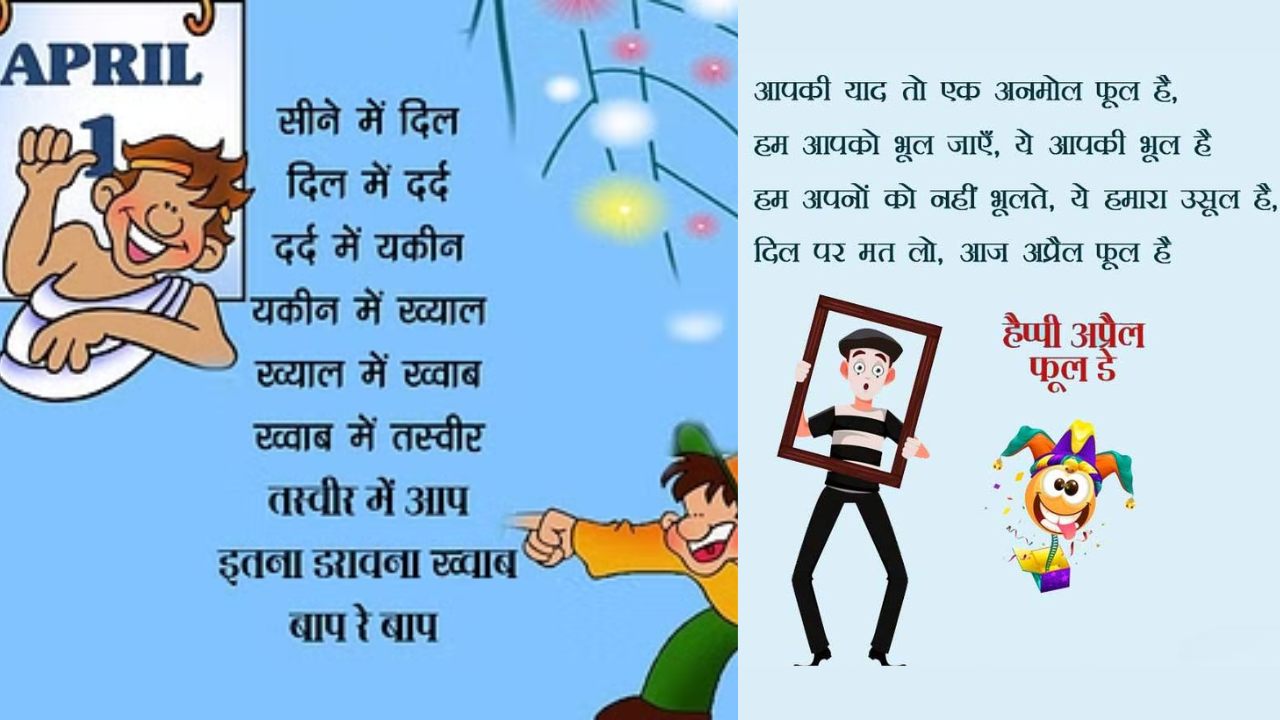 APRIL
1
सीने में दिल
दिल में दर्द
दर्द में यकीन
यकीन में ख्याल
ख्याल में ख्वाब
ख्वाब में तस्वीर
तस्वीर में आप
इतना डरावना ख्वाब
बाप रे बाप
आपकी याद तो एक अनमोल फूल है,
हम आपको भूल जाएँ, ये आपकी भूल है
हम अपनों को नहीं भूलते, ये हमारा उसूल है,
दिल पर मत लो, आज अप्रैल फूल है
हैप्पी अप्रैल
फूल डे